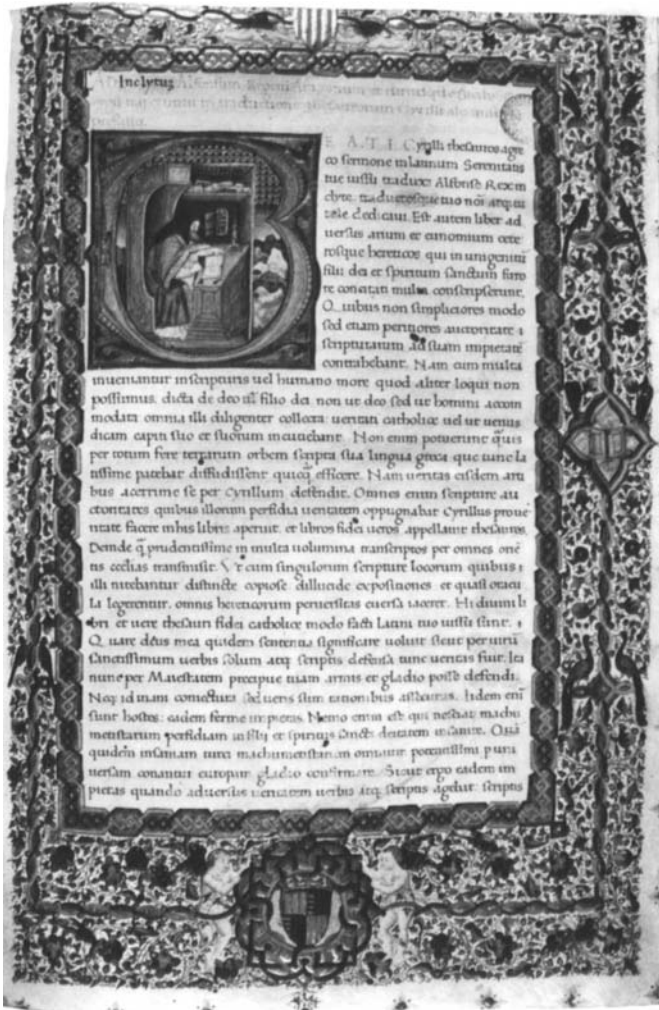 Inclytus Alfonsum Regem
E A T I Cyrilli thesauros a gre
co sermone in latinum Serenitatis
tue iussu traduxi Alfonse Rex in
clyte. traductosque tuo noi atq; ti
tulo dedicaui. Est autem liber ad
uersus arium et eunomium cete
rosque hereticos qui in unigenitū
filiū dei et spiritum sanctum furo
re concitati multa conscripserunt.
Quibus non simpliciores modo
sed etiam peritiores auctoritate
scripturarum ad suam impietatē
contrahebant. Nam cum multa
inueniantur in scripturis uel humano more quod aliter loqui non
possumus. dicta de deo uel filio dei non ut deo sed ut homini accom
modata omnia illi diligenter collecta ueritati catholice uel ut uerius
dicam capiti suo et suorum incutiebant. Non enim potuerunt q̄uis
per totum fere terrarum orbem scripta sua lingua greca que tunc la
tissime patebat diffudissent quicq̄ efficere. Nam ueritas eisdem arti
bus acerrime se per Cyrillum defendit. Omnes enim scripture au
ctoritates quibus illorum perfidia ueritatem oppugnabat Cyrillus
facere in his libris aperuit. et libros fidei ueros appellauit thesauros
Deinde q̄ prudentissime in multa uolumina transcriptos per omnes
ecclias transmisit. Vt cum singulorum scripture locorum quibus
illi nitebantur distincte copiose dillucide expositiones et quasi oracu
la legerentur. omnis hereticorum peruersitas euersa iaceret. Hi diuini li
bri et uere thesauri fidei catholice modo facti latini tuo iussu sunt.
Quare deus mea quidem sententia significare uoluit sicut per uirū
sanctissimum uerbis solum atq; scriptis defensa tunc ueritas fuit. Ita
nunc per Maiestatem precipue tuam armis et gladio posse defendi.
Neq; id inani coniectura sed ueris sum rationibus assecutus. Iidem enī
sunt hostes: eadem ferme impietas. Nemo enim est qui nesciat machu
menistarum perfidiam in filii et spiritus sancti deitatem incitare. Quā
quidem insaniam turci machumenistarum omnium potentissimi per uni
uersam conantur europam gladio confirmare. Sicut ergo eadem im
pietas quando aduersus ueritatem uerbis atq; scriptis agebat scriptis